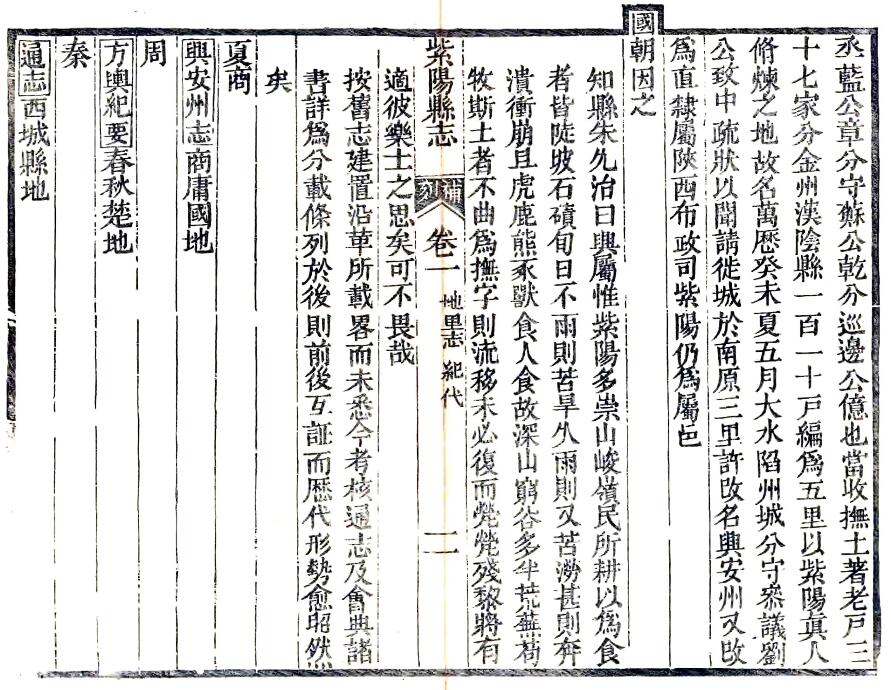 丞藍公章分守蘇公乾分巡邊公億也當收撫土著老戸三
十七家分金州漢陰縣一百一十戸編爲五里以紫陽眞人
脩煉之地故名萬歷癸未夏五月大水陷州城分守叅議劉
公致中疏狀以聞請徙城於南原三里許改名興安州又改
爲直隷屬陝西布政司紫陽仍爲屬邑
國朝因之
知縣朱允治曰興屬惟紫陽多崇山峻嶺民所耕以爲食
者皆陡坡石磧旬日不雨則苦旱久雨則又苦澇甚則奔
潰衝崩且虎鹿熊豕獸食人食故深山窮谷多半荒蕪茍
牧斯土者不曲爲撫字則流移未必復而煢煢殘黎將有
紫陽縣志 補刻 卷一 地里志 紀代 二
適彼樂土之思矣可不畏哉
按舊志建置沿革所載畧而未悉今考核通志及會典諸
書詳爲分載條列於後則前後互証而歷代形勢愈昭然
矣
夏商
興安州志商庸國地
周
方輿紀要春秋楚地
秦
通志西城縣地